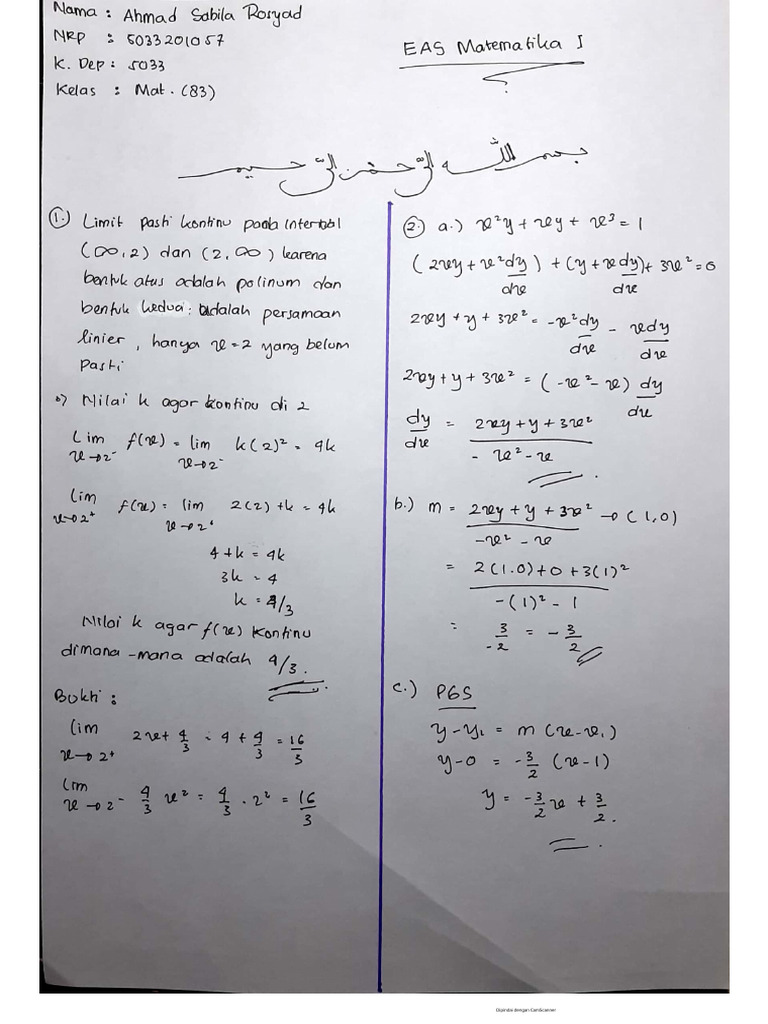 Nama : Ahmad Sabila Rosyad
NRP : 5033201057
K. Dep : 5033
Kelas : Mat. (83)
EAS Matematika I
بسم الله الرحمن الرحيم
1.) Limit pasti kontinu pada Interval
(∞,2) dan (2,∞) karena
bentuk atas adalah polinum dan
bentuk kedua: adalah persamaan
linier, hanya x=2 yang belum
Pasti
o) Nilai k agar kontinu di 2
Lim x→2⁻ f(x) = lim x→2⁻ k(2)² = 4k
Lim x→2⁺ f(x) = lim x→2⁺ 2(2) + k = 4k
4 + k = 4k
3k = 4
k = 4/3
Nilai k agar f(x) kontinu
dimana-mana adalah 4/3.
Bukti :
lim x→2⁺ 2x + 4/3 = 4 + 4/3 = 16/3
lim x→2⁻ 4/3 x² = 4/3 . 2² = 16/3
2. a.) x²y + xy + x³ = 1
(2xy + x² dy/dx) + (y + x dy/dx) + 3x² = 0
2xy + y + 3x² = -x² dy/dx - x dy/dx
2xy + y + 3x² = (-x² - x) dy/dx
dy/dx = 2xy + y + 3x² / - x² - x
b.) m = 2xy + y + 3x² / -x² - x → (1,0)
= 2(1.0) + 0 + 3(1)² / -(1)² - 1
= 3/-2 = -3/2
c.) PGS
y - y₁ = m (x - x₁)
y - 0 = -3/2 (x - 1)
y = -3/2 x + 3/2.
Dipindai dengan CamScanner